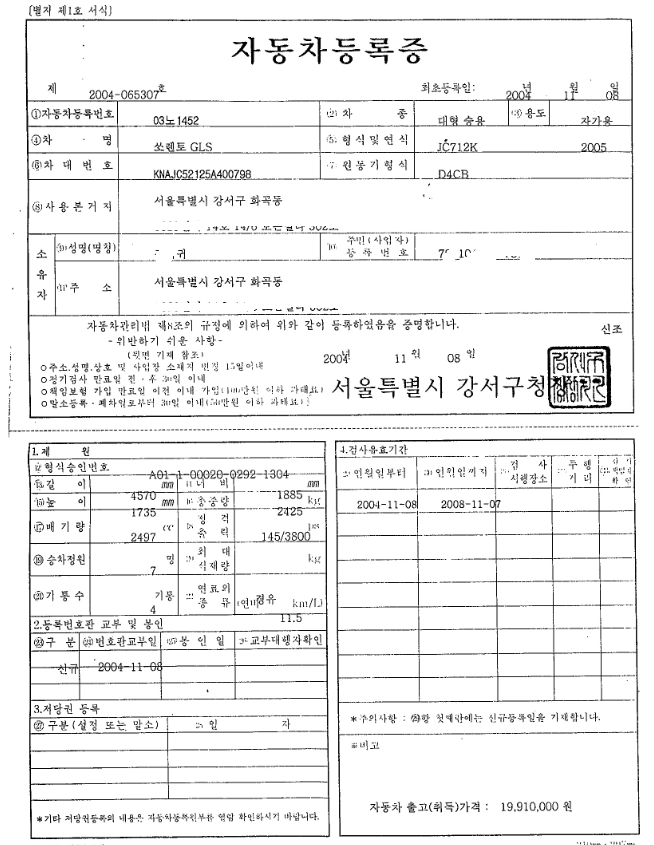 [별지 제1호 서식]
자동차등록증
제 2004-065307호 최초등록일: 2004 년 11 월 08 일
①자동차등록번호 03노1452 ②차 종 대형 승용 ③용도 자가용
④차 명 쏘렌토 GLS ⑤형식 및 연식 JC712K 2005
⑥차 대 번 호 KNAJC52125A400798 ⑦원동기 형식 D4CB
⑧사용본거지 서울특별시 강서구 화곡동
소유자 ⑨성명(명칭) 귀 ⑩주민(사업자)등록번호
주 소 서울특별시 강서구 화곡동
자동차관리법 제8조의 규정에 의하여 위와 같이 등록하였음을 증명합니다.
-위반하기 쉬운 사항- 신조
(뒷면 기재 참조)
2004년 11 월 08 일
○주소,성명,상호 및 사업장 소재지 변경 15일이내
○정기검사 만료일 전·후 30일 이내
○책임보험 가입 만료일 이전 이내 가입(100만원 이하 과태료)
○말소등록·폐차일로부터 30일 이내(50만원 이하 과태료)
서울특별시 강서구청
1.제 원
형식승인번호 A01-1-00020-0292-1304
길 이 4570 mm 너 비 1885 mm
높 이 1735 mm 총중량 2425 kg
배 기 량 2497 cc 정격출력 145/3800 ps
승차정원 7 명 최대적재량 kg
기 통 수 4 기통 연료의 종류 경유 (연비 11.5 km/L)
2.등록번호판 교부 및 봉인
구 분 번호판교부일 봉 인 일 교부대행자확인
신규 2004-11-08
3.저당권 등록
구분(설정 또는 말소) 일 자
*기타 저당권등록의 내용은 자동차등록원부를 열람 확인하시기 바랍니다.
4.검사유효기간
연월일부터 연월일까지 검사시행장소 주행거리
2004-11-08 2008-11-07
*주의사항 : 항 첫째란에는 신규등록일을 기재합니다.
※비고
자동차 출고(취득)가격 : 19,910,000 원